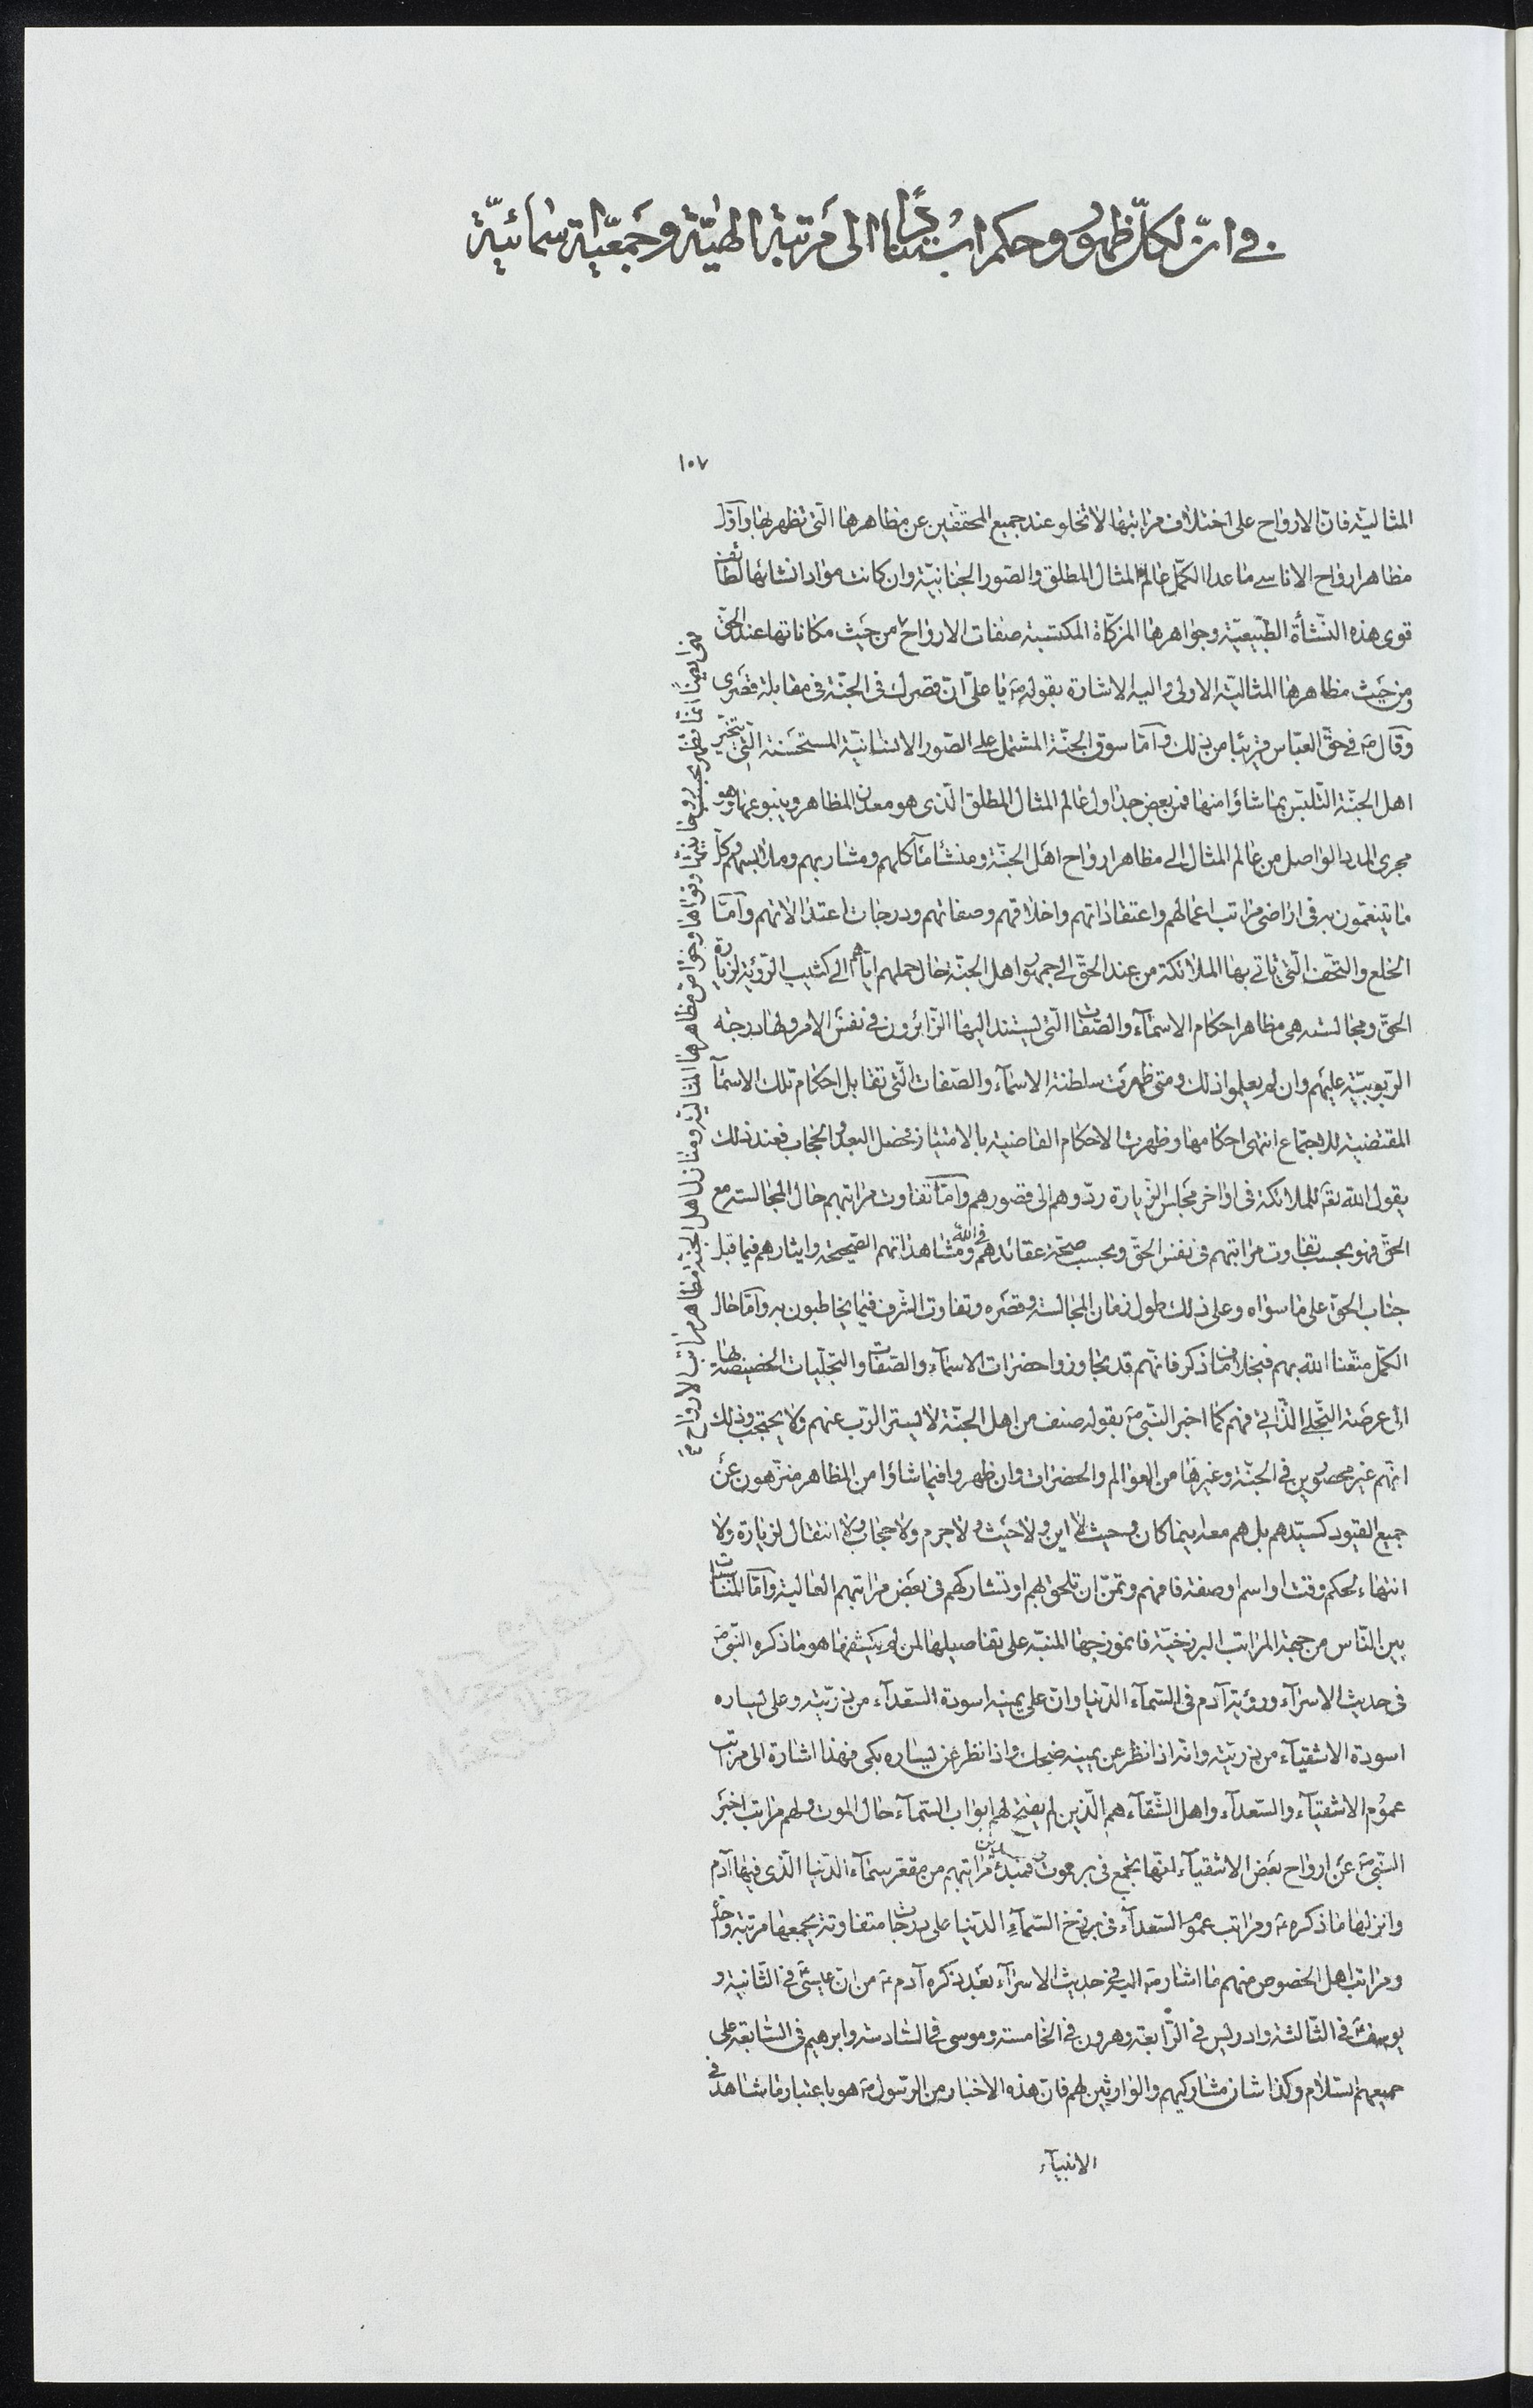 في ان لكل ظهور وحكم استنادًا الى مرتبة الهيّة وجمعيّة اسمائيّة
١٠٧
المثالية فان الارواح على اختلاف مراتبها لا تخلو عند جميع المحققين عن مظاهرها الّتى تظهر بها واوّل
مظاهر ارواح الاناسى ما عدا الكمّل عالم المثال المطلق والصّور الجنانيّة وان كانت موادّ انشائها لطائف
قوى هذه النّشأة الطّبيعيّة وجواهرها المزكّاة المكتسبة صفات الارواح من حيث مكاناتها عند الحقّ
ومن حيث مظاهرها المثاليّة الاولى واليه الاشارة بقوله ص يا علىّ انّ قصرك فى الجنّة فى مقابلة قصرى
وقال ص فى حقّ العبّاس قريبًا من ذلك وامّا سوق الجنّة المشتمل على الصّور الانسانيّة المستحسنة الّتى يتخيّر
اهل الجنّة التّلبّس بما شاؤا منها فمن بعض جداول عالم المثال المطلق الّذى هو معدن المظاهر وينبوعها وهو
مجرى المدد الواصل من عالم المثال الى مظاهر ارواح اهل الجنّة ومنشأ مآكلهم ومشاربهم وملابسهم وكلّ
ما يتنعّمون به فى اراضى مراتب اعمالهم واعتقاداتهم واخلاقهم وصفاتهم ودرجات اعتدالاتهم وامّا
الخلع والتّحف الّتى تاتى بها الملائكة من عند الحقّ الى جمهور اهل الجنّة حال حملهم ايّاهم الى كثيب الرّؤية لزيارة
الحقّ ومجالسته هى مظاهر احكام الاسمآء والصّفات الّتى يستند اليها الزّائرون فى نفس الامر ولها درجة
الرّبوبيّة عليهم وان لم يعلموا ذلك ومتى ظهرت سلطنة الاسمآء والصّفات الّتى تقابل احكام تلك الاسمآ
المقتضية للاجتماع انتهى احكامها وظهرت الاحكام القاضية بالامتياز فحصل البعد والحجاب فعند ذلك
يقول الله تعـ للملائكة فى اواخر مجلس الزّيارة ردّوهم الى قصورهم وامّا تفاوت مراتبهم حال المجالسة مع
الحقّ فهو بحسب تفاوت مراتبهم فى نفس الحقّ وبحسب صحّة عقائدهم فى الله ومشاهداتهم الصّحيحة وايثارهم فيما قبل
جناب الحقّ على ما سواه وعلى ذلك طول زمان المجالسة وقصره وتفاوت الشّرف فيما يخاطبون به وامّا حال
الكمّل متّعنا الله بهم فبخلاف ما ذكر فانّهم قد تجاوزوا حضرات الاسمآء والصّفات والتجلّيات الخصيصة بها
الى عرصة التّجلّى الذّاتى فهم كما اخبر النّبى ص بقوله صنف من اهل الجنّة لا يستتر الرّبّ عنهم ولا يحتجب وذلك
انّهم غير محصورين فى الجنّة وغيرها من العوالم والحضرات وان ظهروا فيما شاؤا من المظاهر منزّهون عن
جميع القيود كسيّدهم بل هم معه اينما كان وحيث لا اين ولا حيث ولا جرم ولا حجاب ولا انتقال لزيارة ولا
انتهاء لحكم وقت او اسم او صفة فافهم وتمنّ ان تلحق بهم او تشاركهم فى بعض مراتبهم العالية وامّا المناسبات
بين النّاس من جهة المراتب البرزخيّة فانموذجها المنبّه على تفاصيلها لمن لم يكشفها هو ما ذكره النّبىّ ص
فى حديث الاسرآء ورؤية آدم فى السّمآء الدّنيا وانّ على يمينه اسودة السّعدآء من ذرّيّته وعلى يساره
اسودة الاشقيآء من ذرّيّته وانّه اذا نظر عن يمينه ضحك واذا نظر عن يساره بكى فهذا اشارة الى مراتب
عموم الاشقيآء والسّعدآء واهل الشّقآء هم الّذين لم يفتح لهم ابواب السّمآء حال الموت ولهم مراتب اخبر
النّبى ص عن ارواح بعض الاشقيآء انّها تجمع فى برهوت فمبدأ مراتبهم من مقعّر سمآء الدّنيا الّذى فيها آدم
وانزلها ما ذكره ع ومراتب عموم السّعدآء فى برزخ السّمآء الدّنيا على درجات متفاوتة يجمعها مرتبة واحدة
ومراتب اهل الخصوص منهم ما اشار ص اليه فى حديث الاسرآء بعد ذكره آدم ع من انّ عيسى ع فى الثّانية و
يوسف ع فى الثّالثة وادريس فى الرّابعة وهرون فى الخامسة وموسى فى السّادسة وابرهيم فى السّابعة على
جميعهم السّلام وكذا شان مشاركيهم والوارثين لهم فانّ هذه الاخبار من الرّسول ص هو باعتبار ما شاهد فى
الانبيآء